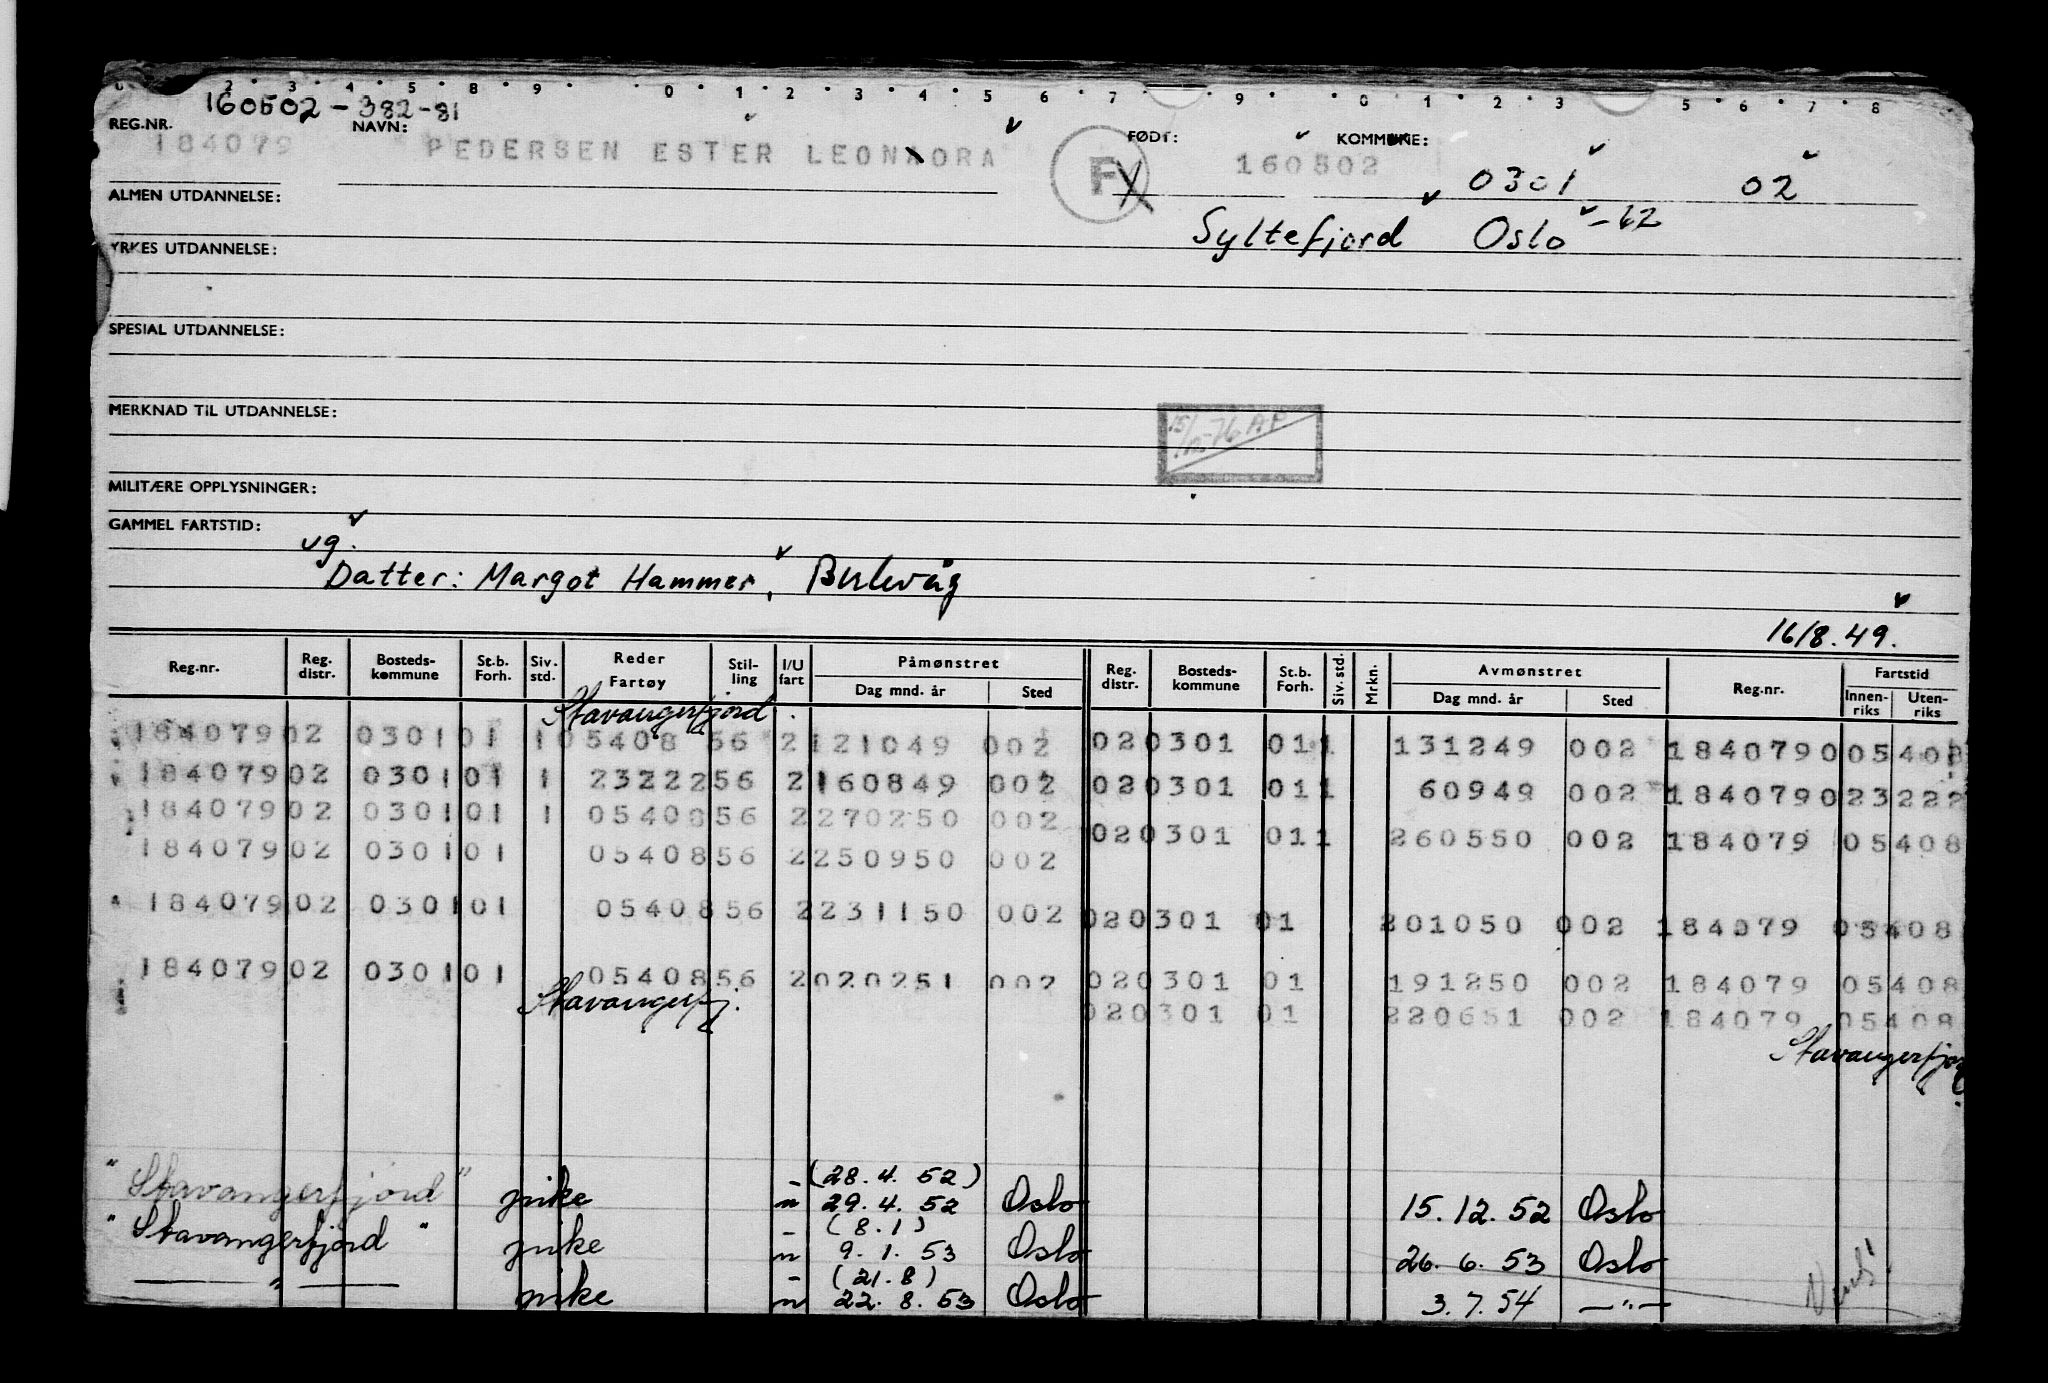 160502-382-81
REG.NR. NAVN: FØDT: KOMMUNE:
184079 PEDERSEN ESTER LEONORA F 160502 0301 02
ALMEN UTDANNELSE:
Syltefjord Oslo -62
YRKES UTDANNELSE:
SPESIAL UTDANNELSE:
MERKNAD TIL UTDANNELSE:
MILITÆRE OPPLYSNINGER:
GAMMEL FARTSTID:
vg.
Datter: Margot Hammer, Bulevåg
16/8.49.
Reg.nr. Reg. distr. Bosteds-kommune St.b. Forh. Siv. std. Reder Fartøy Stil-ling I/U fart Påmønstret Dag mnd. år Sted Reg. distr. Bosteds-kommune St.b. Forh. Siv. std. Mrkn. Avmønstret Dag mnd. år Sted Reg.nr. Fartstid Innen-riks Uten-riks
Stavangerfjord
184079 02 0301 01 1 05408 56 2 121049 002 02 0301 01 1 131249 002 184079 0 05408
184079 02 0301 01 1 23222 56 2 160849 002 02 0301 01 1 60949 002 184079 0 23222
184079 02 0301 01 1 05408 56 2 270250 002 02 0301 01 1 260550 002 184079 05408
184079 02 0301 01 05408 56 2 250950 002
184079 02 0301 01 05408 56 2 231150 002 02 0301 01 201050 002 184079 05408
184079 02 0301 01 05408 56 2 020251 002 02 0301 01 191250 002 184079 05408
Stavangerfj. 02 0301 01 220651 002 184079 05408
Stavangerfjord
(28.4.52)
"Stavangerfjord" pike u 29.4.52 Oslo 15.12.52 Oslo
(8.1)
"Stavangerfjord" pike u 9.1.53 Oslo 26.6.53 Oslo
(21.8)
—"— pike u 22.8.53 Oslo 3.7.54 —"—